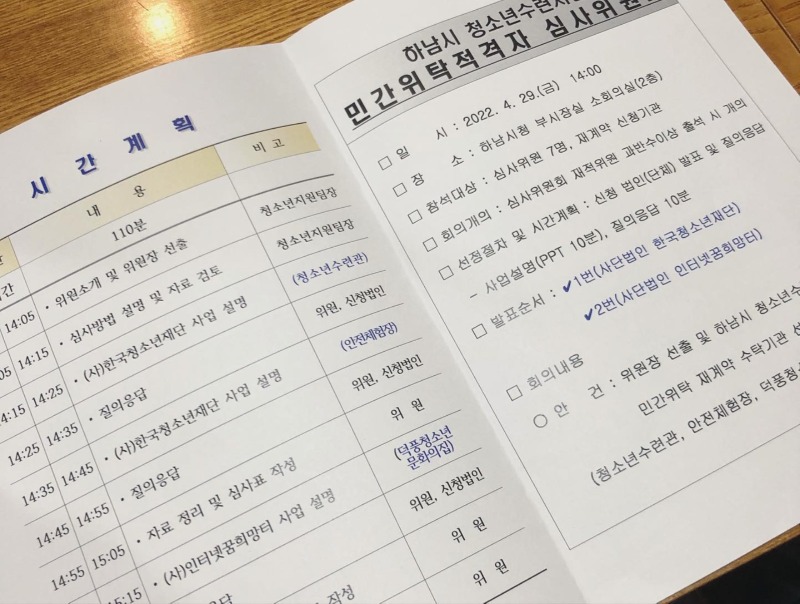 시 간 계 획
내 용
비 고
110분
14:05 • 위원소개 및 위원장 선출 청소년지원팀장
14:15 • 심사방법 설명 및 자료 검토 청소년지원팀장
14:15 14:25 • (사)한국청소년재단 사업 설명 (청소년수련관)
14:25 14:35 • 질의응답 위원, 신청법인
14:35 14:45 • (사)한국청소년재단 사업 설명 (안전체험장)
14:45 14:55 • 질의응답 위원, 신청법인
14:55 15:05 • 자료 정리 및 심사표 작성 위 원
15:15 • (사)인터넷꿈희망터 사업 설명 (덕풍청소년
문화의집)
위원, 신청법인
위 원
작성 위 원
하남시 청소년수련시설
민간위탁적격자 심사위원
□ 일 시 : 2022. 4. 29.(금) 14:00
□ 장 소 : 하남시청 부시장실 소회의실(2층)
□ 참석대상 : 심사위원 7명, 재계약 신청기관
□ 회의개의 : 심사위원회 재적위원 과반수이상 출석 시 개의
□ 선정절차 및 시간계획 : 신청 법인(단체) 발표 및 질의응답
- 사업설명(PPT 10분), 질의응답 10분
□ 발표순서 : ✔1번(사단법인 한국청소년재단)
✔2번(사단법인 인터넷꿈희망터)
□ 회의내용
○ 안 건 : 위원장 선출 및 하남시 청소년수
민간위탁 재계약 수탁기관 선
(청소년수련관, 안전체험장, 덕풍청소